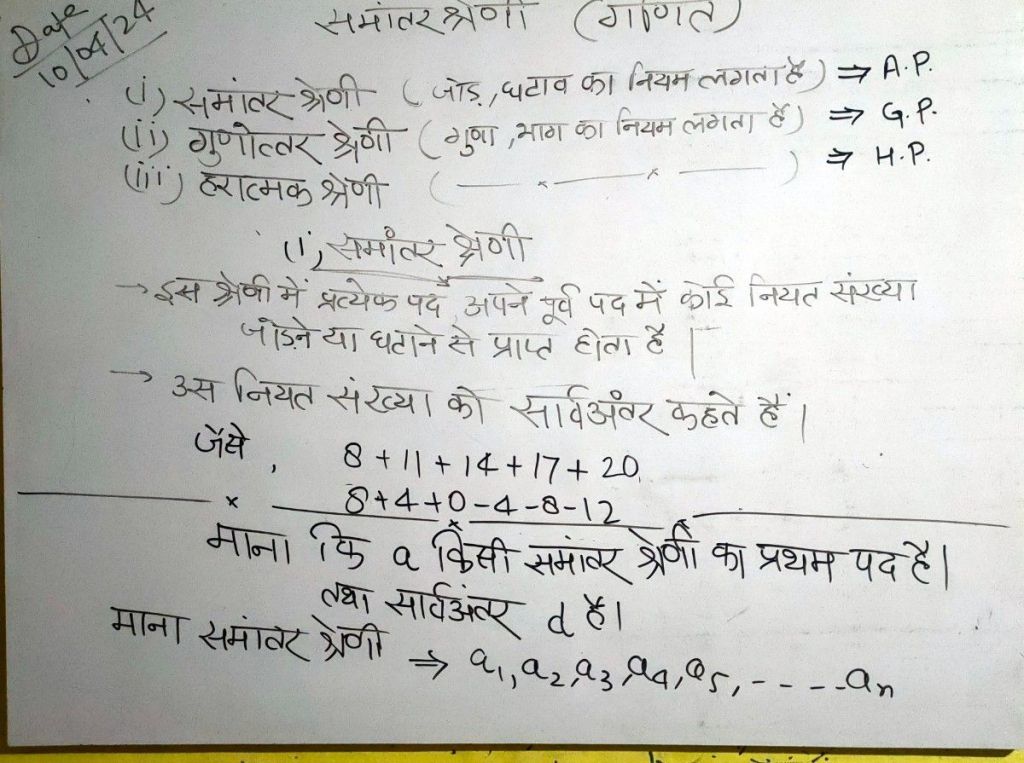 Date
10/04/24
समांतर श्रेणी (गणित)
(i) समांतर श्रेणी (जोड़, घटाव का नियम लगता है) ⇒ A.P.
(ii) गुणोत्तर श्रेणी (गुणा, भाग का नियम लगता है) ⇒ G.P.
(iii) हरात्मक श्रेणी ( — × — × — ) ⇒ H.P.
(i) समांतर श्रेणी
→ इस श्रेणी में प्रत्येक पद, अपने पूर्व पद में कोई नियत संख्या
जोड़ने या घटाने से प्राप्त होता है।
→ उस नियत संख्या को सार्वअंतर कहते हैं।
जैसे, 8 + 11 + 14 + 17 + 20
8 + 4 + 0 - 4 - 8 - 12
माना कि a किसी समांतर श्रेणी का प्रथम पद है।
तथा सार्वअंतर d है।
माना समांतर श्रेणी ⇒ a₁, a₂, a₃, a₄, a₅, - - - - aₙ